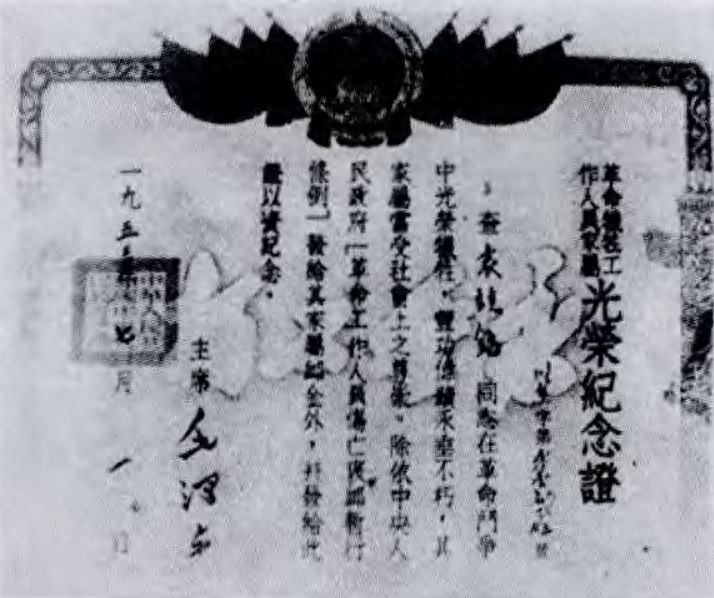 革命犧牲工
作人員家屬
光榮紀念證
查袁 同志在革命鬥爭
中光榮犧牲,豐功偉績永垂不朽,其
家屬當受社會上之尊崇。除依中央人
民政府「革命工作人員傷亡褒卹暫行
條例」發給其家屬卹金外,并發給此
證以資紀念。
主席 毛澤東
一九五 年 七月一 日